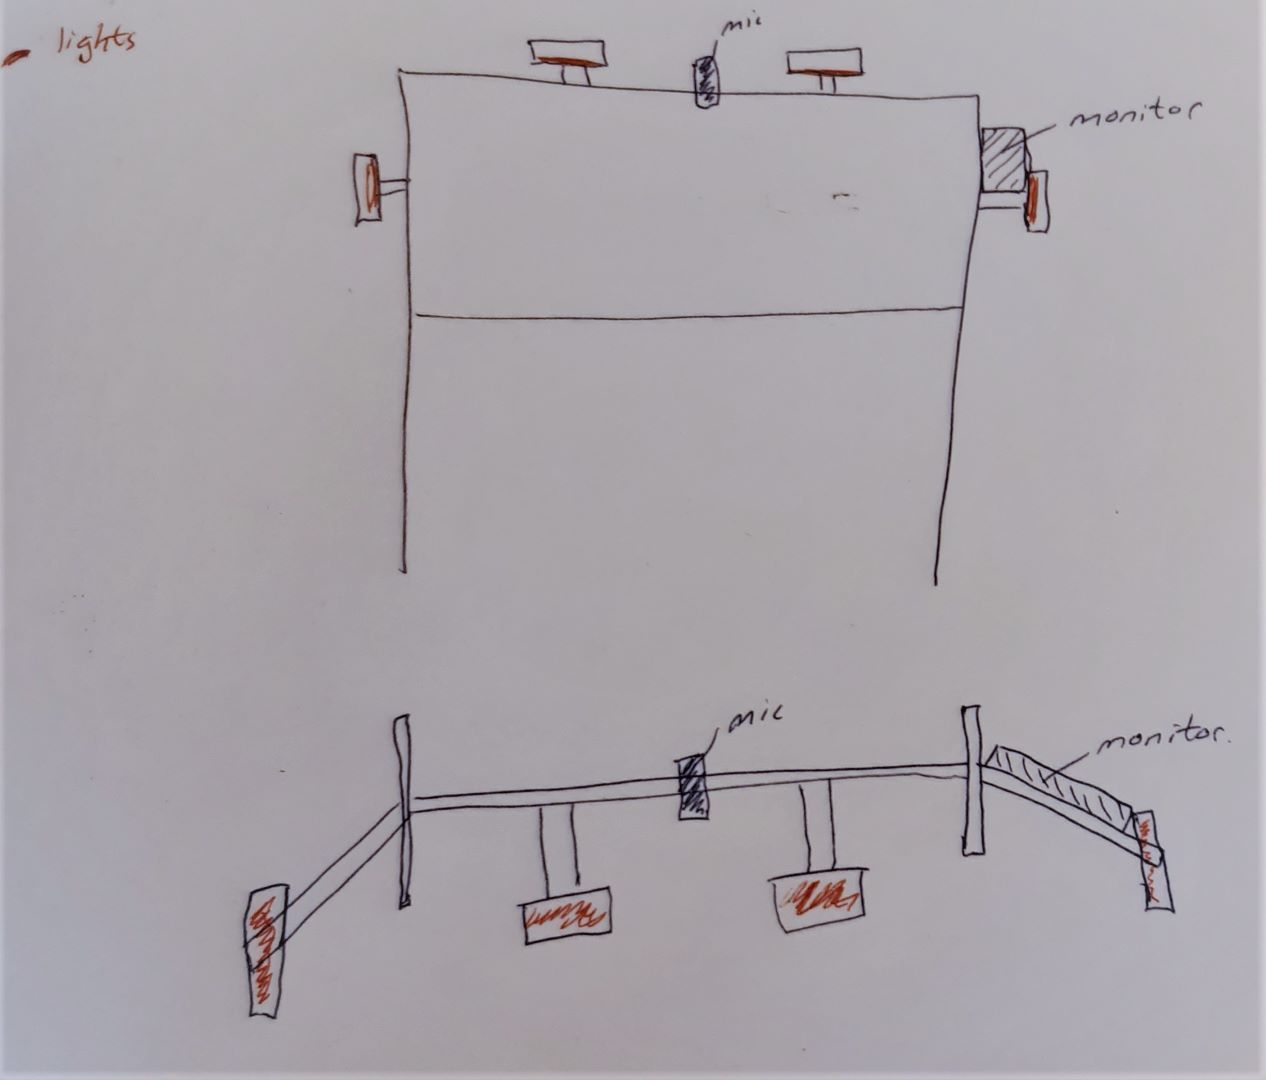 lights
mic
monitor
mic
monitor.